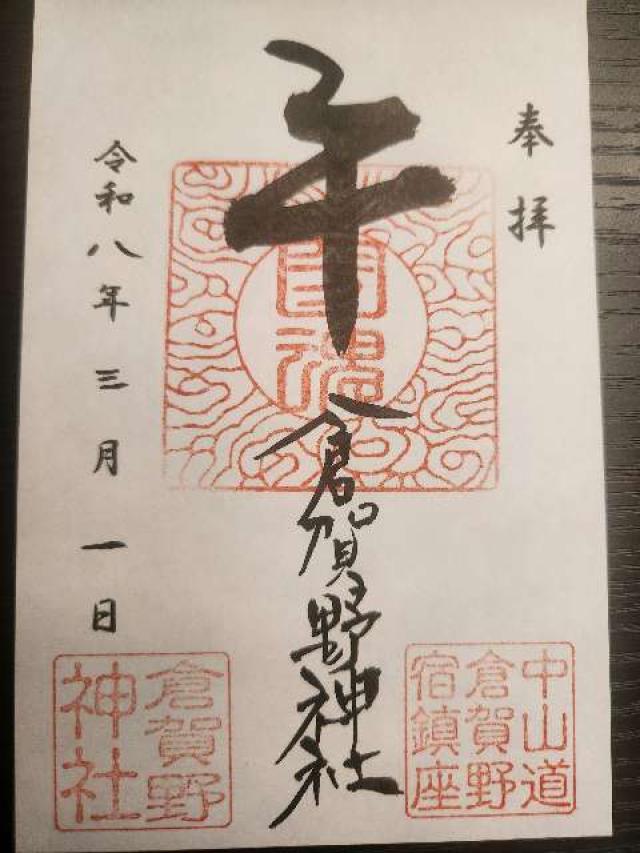 奉拝
中山道
倉賀野
宿鎮座
午
倉賀野神社
令和八年三月一日
倉賀野
神社